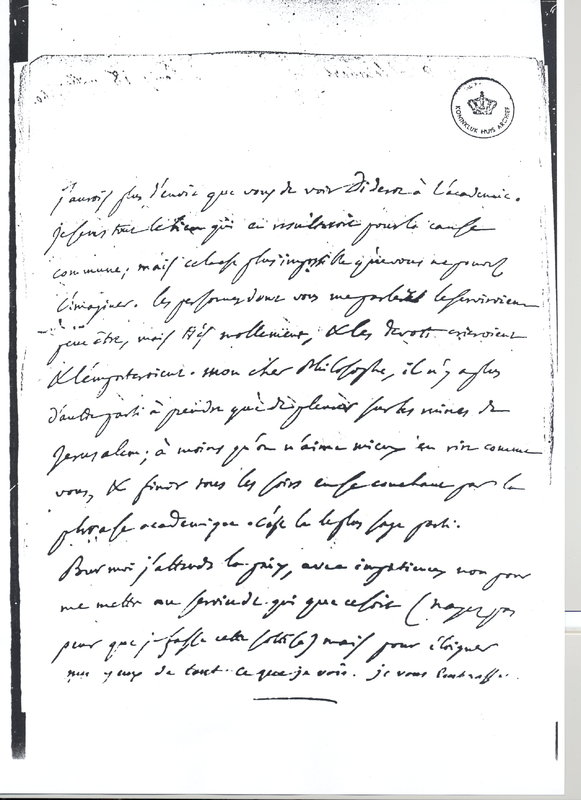 KONINKLIJK HUIS ARCHIEF
j'aurois plus d'envie que vous de voir Diderot à l'académie.
je sens tout le bien qui en resulteroit pour la cause
commune; mais cela est plus impossible que vous ne pouvez
l'imaginer. les personnes dont vous me parlez le serviroient
peut être, mais très mollement, & les devots crieroient
& l'emporteroient. mon cher Philosophe, il n'y a plus
d'autre parti à prendre que de pleurer sur les ruines de
Jerusalem; à moins qu'on n'aime mieux en rire comme
vous, & finir tous les soirs en se couchant par la
phrase academique. c'est là le plus sage parti.
Pour moi j'attends la paix, avec impatience, non pour
me mettre au service de qui que ce soit (n'ayez pas
peur que je fasse cette sottise) mais pour éloigner
mes yeux de tout ce que je vois. je vous embrasse.